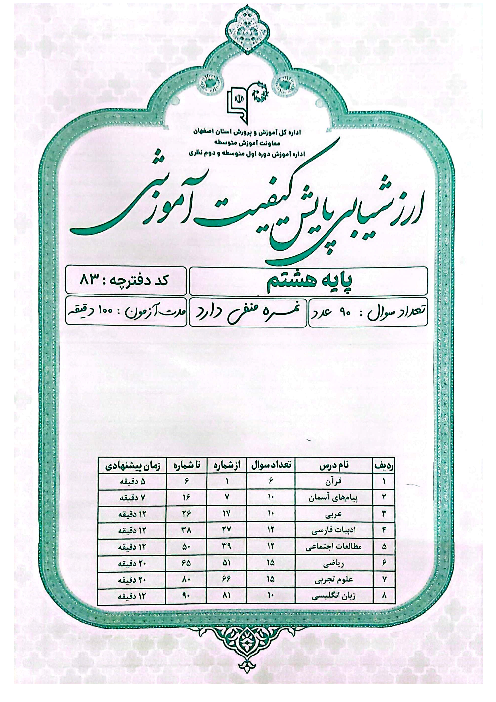 اداره کل آموزش و پرورش استان اصفهان
معاونت آموزش متوسطه
اداره آموزش دوره اول متوسطه و دوم نظری
ارزشیابی پایش کیفیت آموزشی
پایه هشتم کد دفترچه : ۸۳
تعداد سوال : ۹۰ عدد نمره منفی دارد مدت آزمون : ۱۰۰ دقیقه
ردیف نام درس تعداد سوال از شماره تا شماره زمان پیشنهادی
۱ قرآن ۶ ۱ ۶ ۵ دقیقه
۲ پیام‌های آسمان ۱۰ ۷ ۱۶ ۷ دقیقه
۳ عربی ۱۰ ۱۷ ۲۶ ۱۲ دقیقه
۴ ادبیات فارسی ۱۲ ۲۷ ۳۸ ۱۲ دقیقه
۵ مطالعات اجتماعی ۱۲ ۳۹ ۵۰ ۱۲ دقیقه
۶ ریاضی ۱۵ ۵۱ ۶۵ ۲۰ دقیقه
۷ علوم تجربی ۱۵ ۶۶ ۸۰ ۲۰ دقیقه
۸ زبان انگلیسی ۱۰ ۸۱ ۹۰ ۱۲ دقیقه